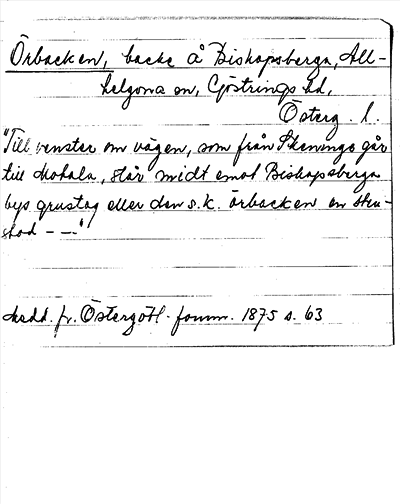 Örbacken, backe å Biskopsberga, All-
helgona sn, Göstrings hd,
Österg. l.
"Till venster om vägen, som från Skeninge går
till Motala, står midt emot Biskopsberga
bys grustag eller den s.k. örbacken en sten-
stod - — "
Medd. fr. Östergötl. fornm. 1875 s. 63